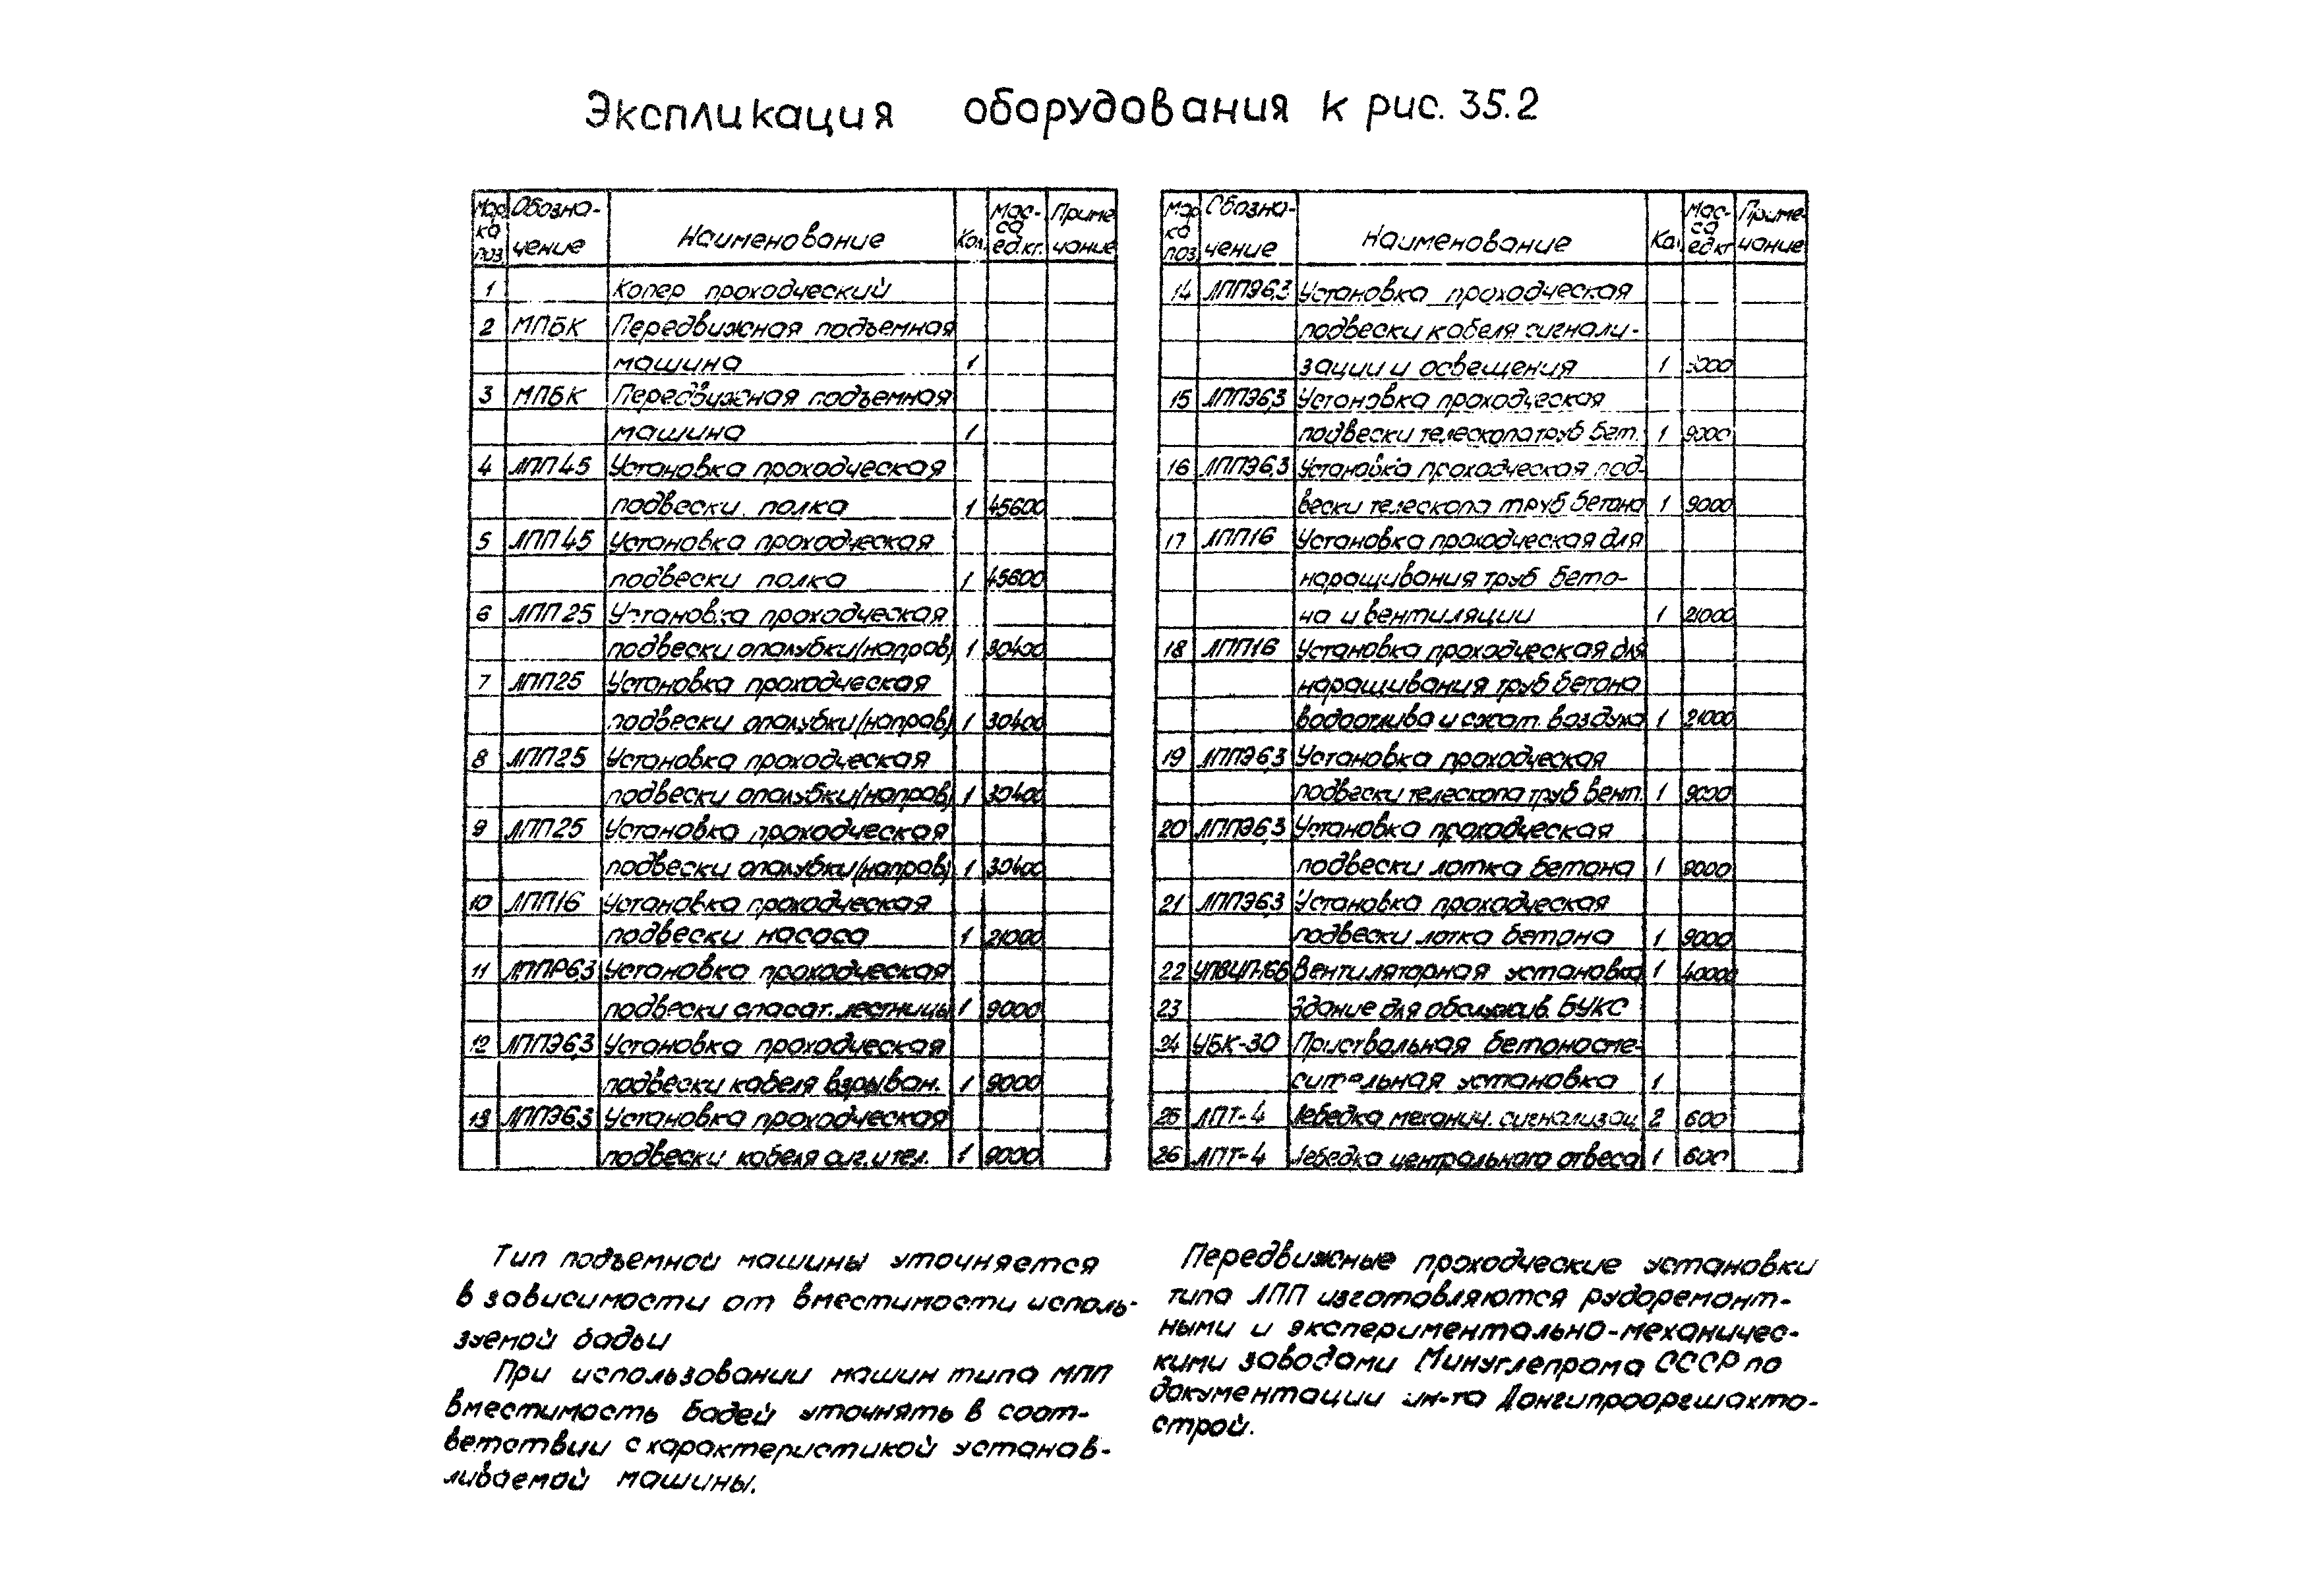 Экспликация оборудования к рис. 35.2
Мар ка поз. Обозна- чение Наименование Кол. Мас- са ед.кг. Приме чание
1 Копер проходческий
2 МПБК Передвижная подъемная
машина 1
3 МПБК Передвижная подъемная
машина 1
4 ЛПП45 Установка проходческая
подвески полка 1 45600
5 ЛПП45 Установка проходческая
подвески полка 1 45600
6 ЛПП25 Установка проходческая
подвески опалубки(направ) 1 30400
7 ЛПП25 Установка проходческая
подвески опалубки(направ) 1 30400
8 ЛПП25 Установка проходческая
подвески опалубки(направ) 1 30400
9 ЛПП25 Установка проходческая
подвески опалубки(направ) 1 30400
10 ЛПП16 Установка проходческая
подвески насоса 1 21000
11 ЛППР6,3 Установка проходческая
подвески спасат. лестницы 1 9000
12 ЛППЭ6,3 Установка проходческая
подвески кабеля взрыван. 1 9000
13 ЛППЭ6,3 Установка проходческая
подвески кабеля сиг. и тел. 1 9000
Мар ка поз. Обозна- чение Наименование Кол. Мас- са ед.кг Приме- чание
14 ЛППЭ6,3 Установка проходческая
подвески кабеля сигнали-
зации и освещения 1
15 ЛППЭ6,3 Установка проходческая
подвески телескопа труб бет. 1 9000
16 ЛППЭ6,3 Установка проходческая под-
вески телескопа труб бетона 1 9000
17 ЛПП16 Установка проходческая для
наращивания труб бето-
на и вентиляции 1 21000
18 ЛПП16 Установка проходческая для
наращивания труб бетона
водоотлива и сжат. воздуха 1 21000
19 ЛППЭ6,3 Установка проходческая
подвески телескопа труб вент. 1 9000
20 ЛППЭ6,3 Установка проходческая
подвески лотка бетона 1 9000
21 ЛППЭ6,3 Установка проходческая
подвески лотка бетона 1 9000
22 УПВЦП-16Б Вентиляторная установка 1 40000
23 Здание для обслужив. БУКС
24 УБК-30 Приствольная бетоносме-
сительная установка 1
25 ЛПТ-4 Лебедка механич. сигнализац. 2 600
26 ЛПТ-4 Лебедка центрального отвеса 1 600
Тип подъемной машины уточняется
в зависимости от вместимости исполь-
зуемой бадьи
При использовании машин типа МПП
вместимость бадей уточнять в соот-
ветствии с характеристикой устанав-
ливаемой машины.
Передвижные проходческие установки
типа ЛПП изготовляются рудоремонт-
ными и экспериментально-механичес-
кими заводами Минуглепрома СССР по
документации ин-та Донгипрооргшахто-
строй.